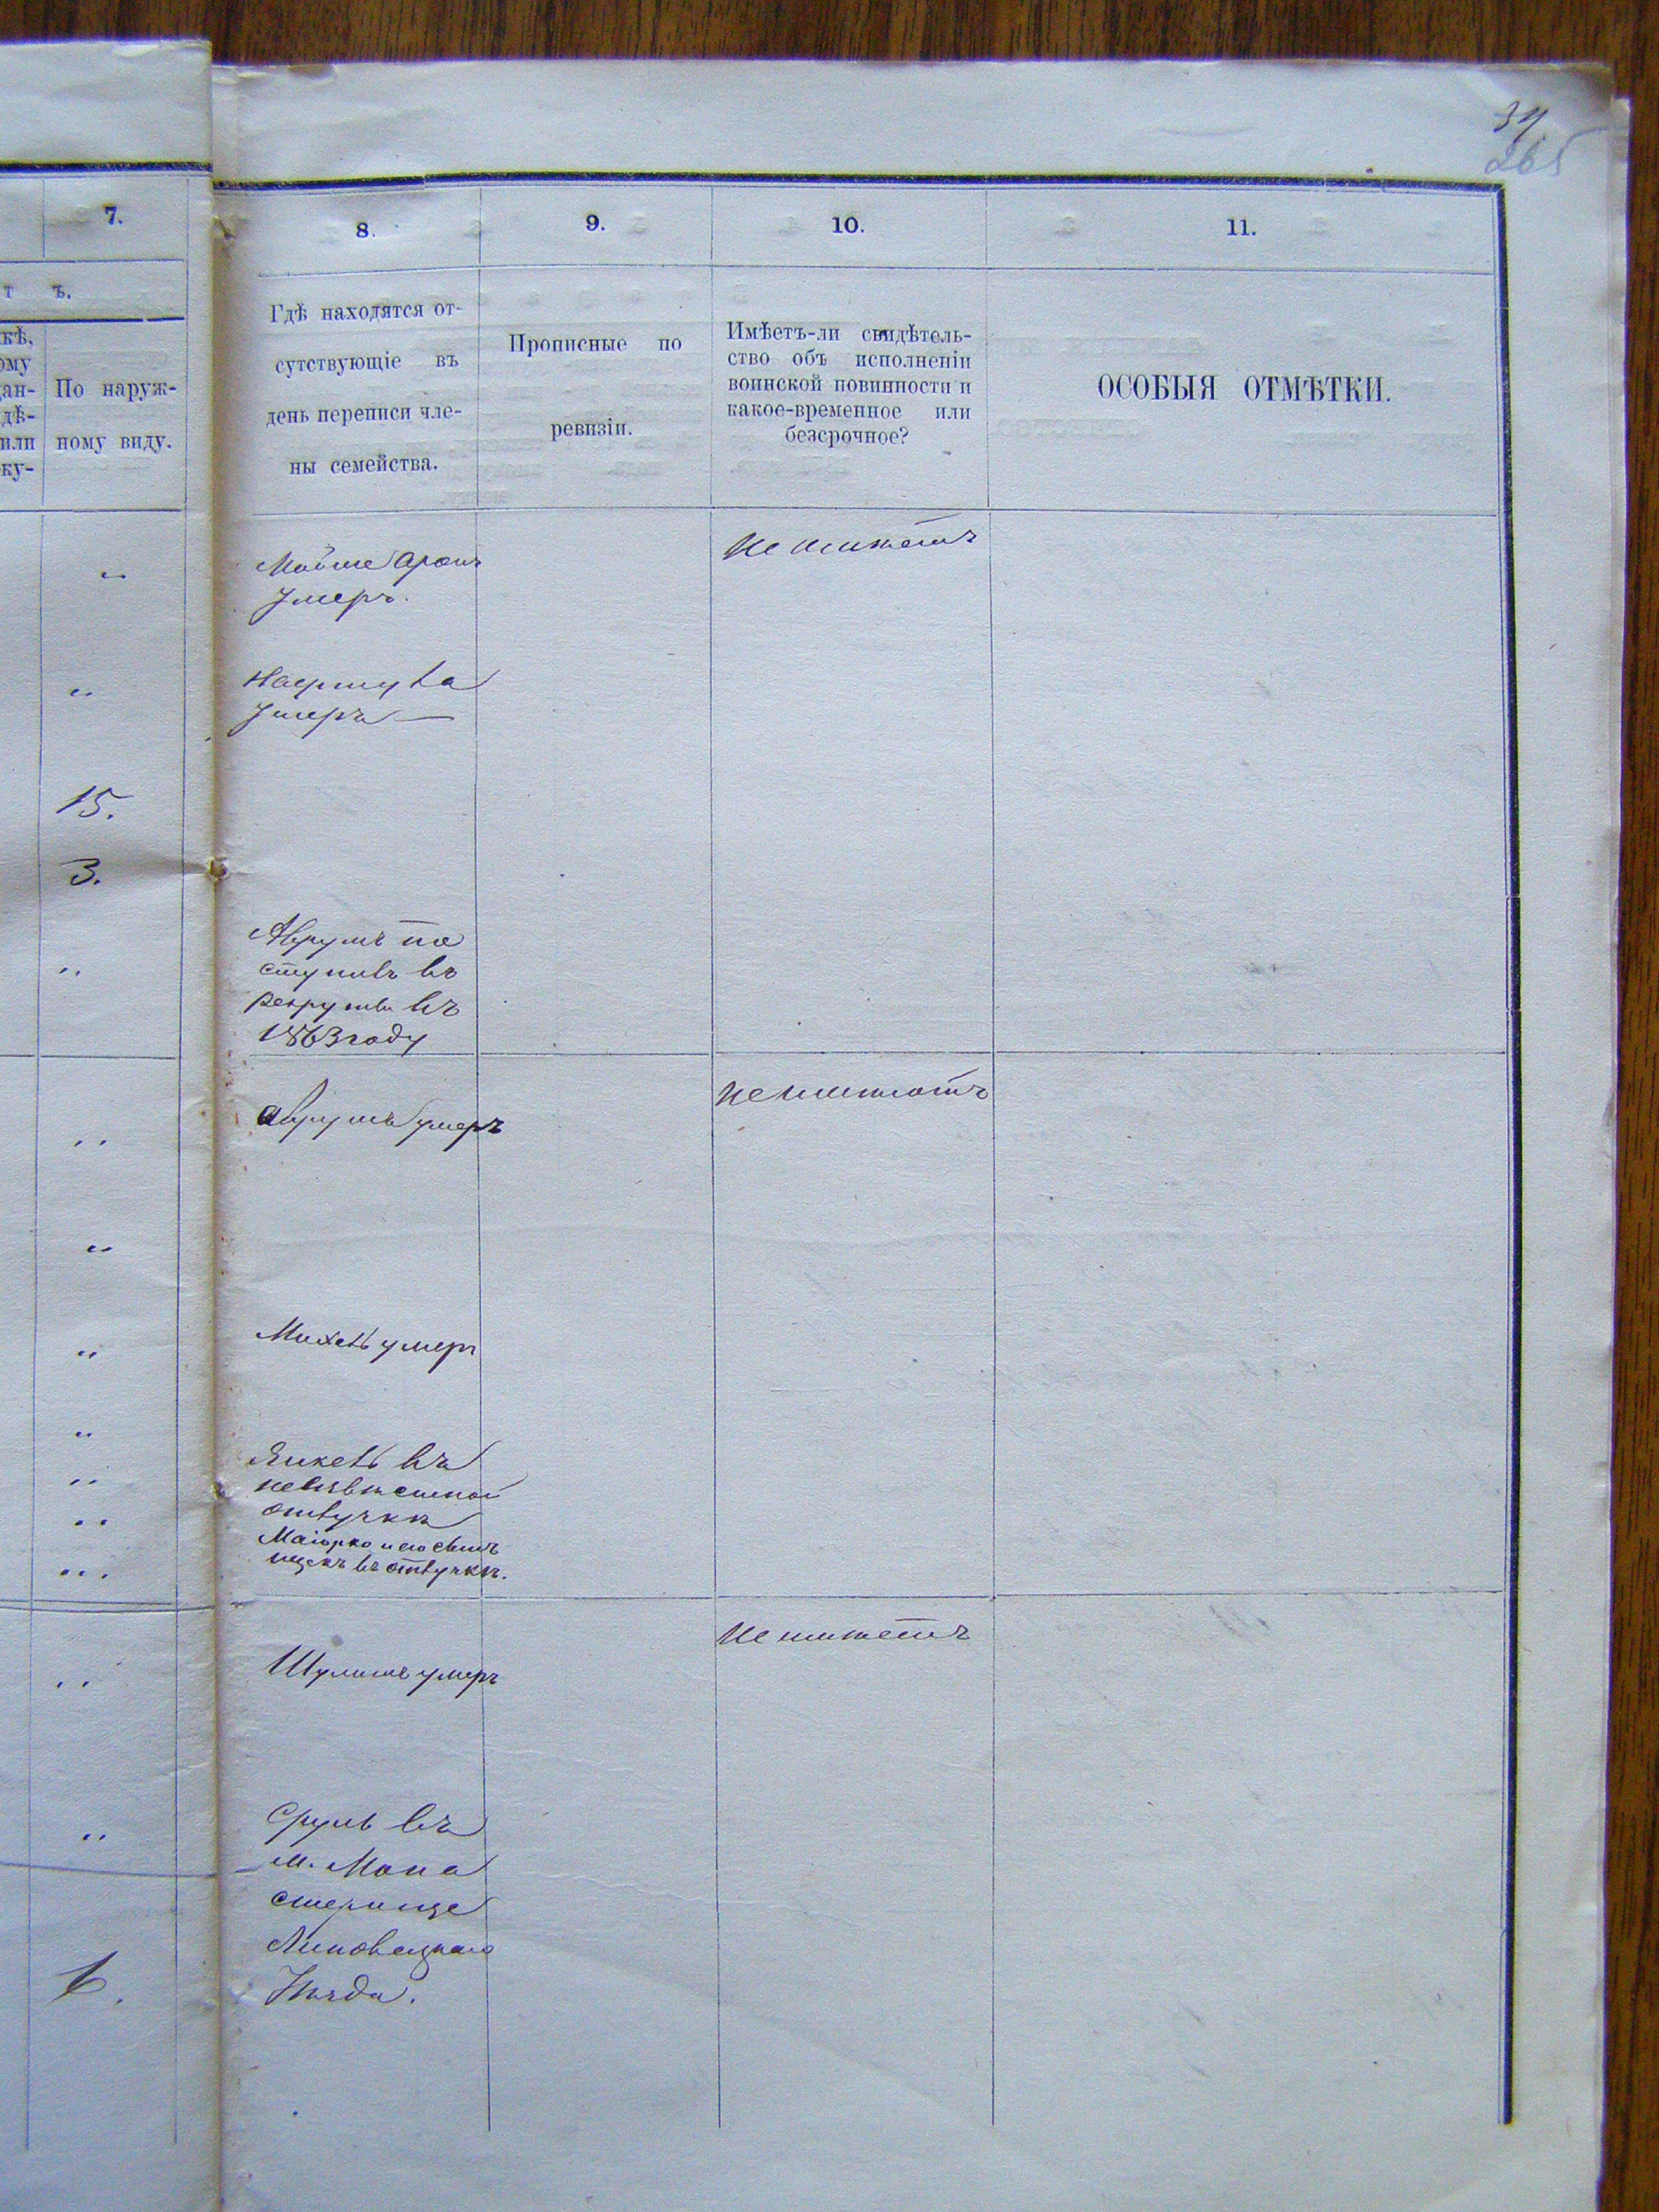 37
265
7.
8.
9.
10.
11.
т ъ.
кѣ,
ому
дан-
дѣ-
или
ку-
По наруж-
ному виду.
Гдѣ находятся от-
сутствующіе въ
день переписи чле-
ны семейства.
Прописные по
ревизіи.
Имѣетъ-ли свидѣтель-
ство объ исполненіи
воинской повинности и
какое-временное или
безсрочное?
ОСОБЫЯ ОТМѢТКИ.
Мойше Аронъ
Умеръ.
не имѣетъ
Умеръ
15.
3.
Аврумъ по
ступилъ въ
рекруты въ
1863 году
Аврумъ умеръ
не имѣютъ
Михель умеръ
Янкель въ
неизвѣстной
отлучкѣ
Маіорко и его сынъ
Ицекъ въ отлучкѣ.
Шулимъ умеръ
не имѣетъ
Сруль въ
м. Мона
стерище
Липовецкаго
Уѣзда.
6.